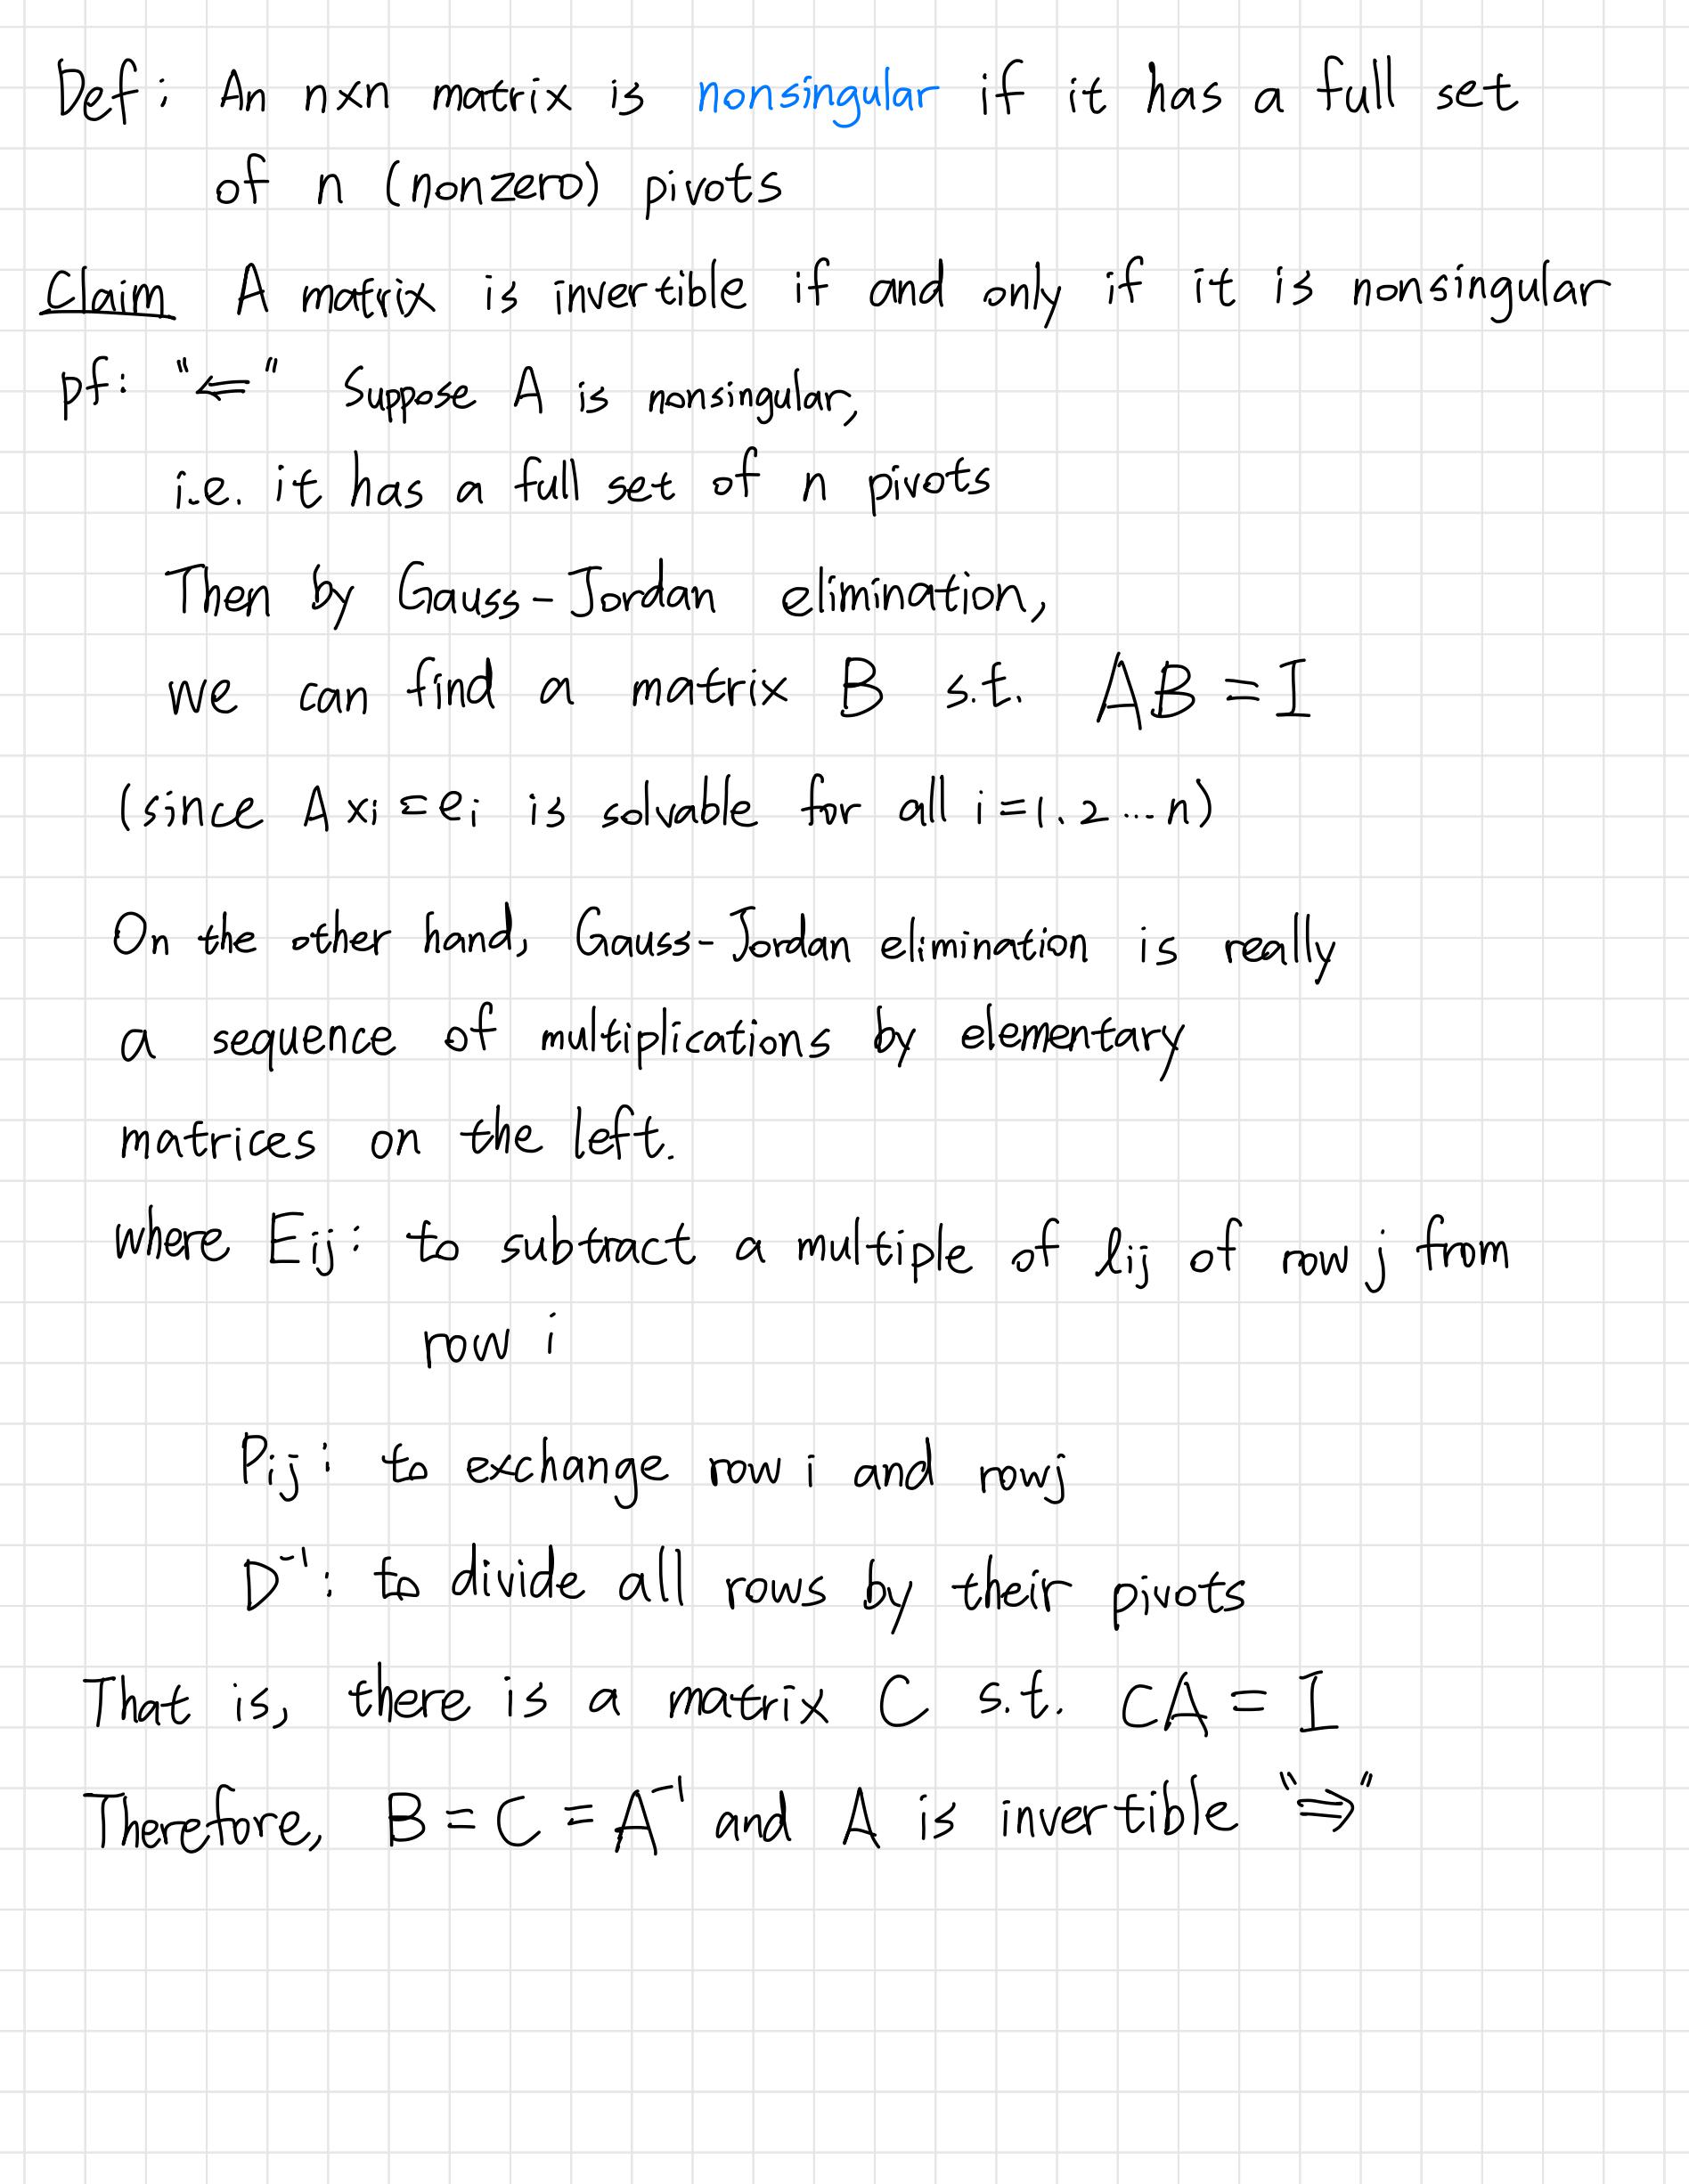 Def: An n×n matrix is nonsingular if it has a full set
of n (nonzero) pivots
Claim A matrix is invertible if and only if it is nonsingular
pf: "⇐" Suppose A is nonsingular,
i.e. it has a full set of n pivots
Then by Gauss-Jordan elimination,
we can find a matrix B s.t. AB = I
(since A xi = ei is solvable for all i=1.2...n)
On the other hand, Gauss-Jordan elimination is really
a sequence of multiplications by elementary
matrices on the left.
where Eij: to subtract a multiple of lij of row j from
row i
Pij: to exchange row i and row j
D⁻¹: to divide all rows by their pivots
That is, there is a matrix C s.t. CA = I
Therefore, B = C = A⁻¹ and A is invertible "⇒"